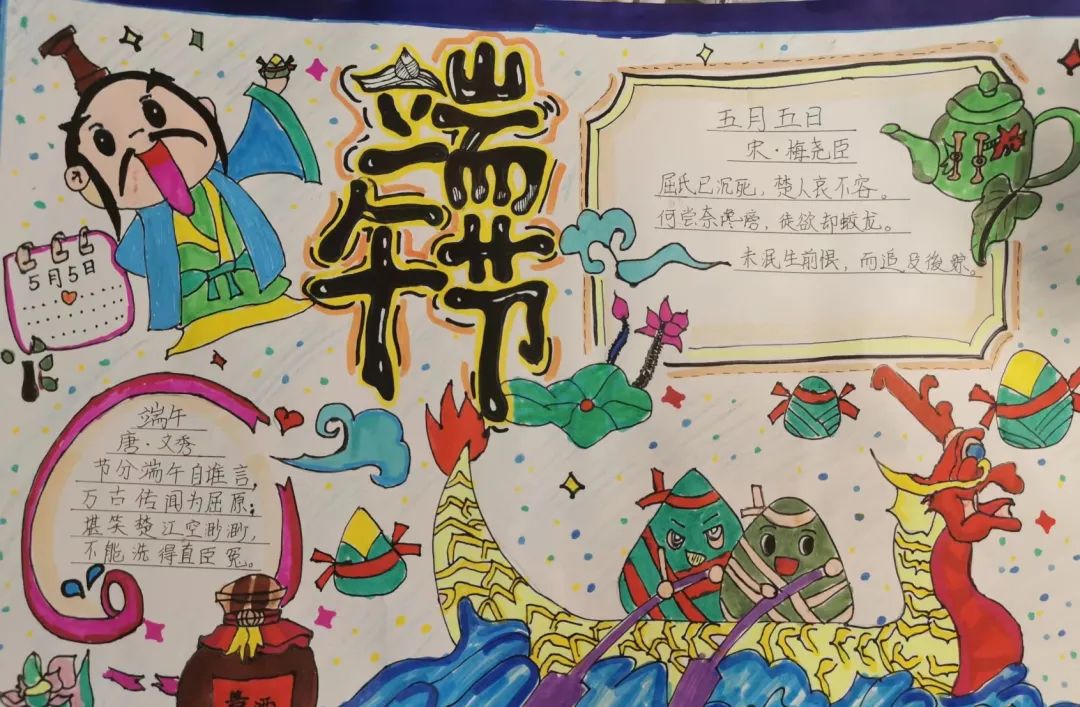 端午节
5月5日
五月五日
宋·梅尧臣
屈氏已沉死，楚人哀不容。
何尝奈谗谤，徒欲却蛟龙。
未泯生前恨，而追没後踪。
端午
唐·文秀
节分端午自谁言，
万古传闻为屈原；
堪笑楚江空渺渺，
不能洗得直臣冤。
黄酒